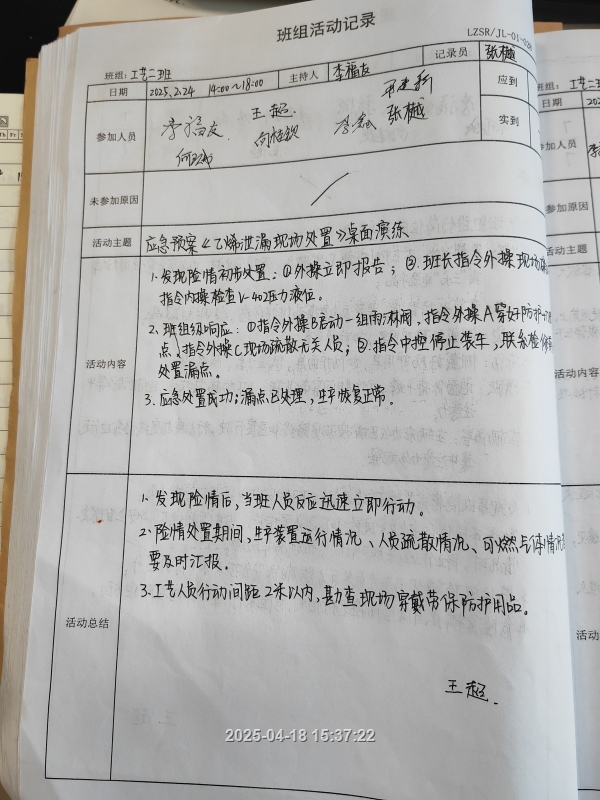 班组活动记录
LZSR/JL-01-
班组：工艺二班
日期 2025.2.24 14:00~18:00 主持人 李福友 记录员 张樾
参加人员 李福友 王超 张樾 应到
实到
未参加原因
活动主题 应急预案《乙烯泄漏现场处置》桌面演练
活动内容
1. 发现险情初步处置：①外操立即报告；②班长指令外操现场
指令内操检查V-402压力液位。
2. 班组级响应：①指令外操B启动一组雨淋阀，指令外操A穿好防护
点，指令外操C现场疏散无关人员；②指令中控停止装车，联系检修
处置漏点。
3. 应急处置成功；漏点已处理，生产恢复正常。
活动总结
1. 发现险情后，当班人员反应迅速立即行动。
2. 险情处置期间，生产装置运行情况、人员疏散情况、可燃气体情况
要及时汇报。
3. 工艺人员行动间距2米以内，勘查现场穿戴劳保防护用品。
王超.
2025-04-18 15:37:22
班组：工艺二
日期 202
参加人员
未参加原因
活动主题
活动内容
活动